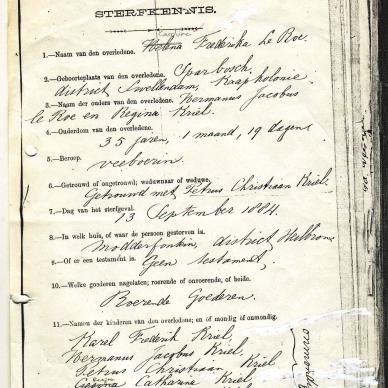 STERFKENNIS.
Caroline
1.—Naam van den overledene. Helena Frederika Le Roe.
2.—Geboorteplaats van den overledene. Sparbosch,
district Swellendam, Kaapkolonie.
3.—Namen der ouders van den overledene. Hermanus Jacobus
le Roe en Regina Kriel.
4.—Ouderdom van den overledene.
35 jaren, 1 maand, 19 dagen
5.—Beroep.
veeboerin.
6.—Getrouwd of ongetrouwd; weduwnaar of weduwe.
Getrouwd met Petrus Christiaan Kriel.
7.—Dag van het sterfgeval.
13 September 1884.
8.—In welk huis, of waar de persoon gestorven is.
Modderfontein, district Heilbron.
9.—Of er een testament is.
Geen testament,
10.—Welke goederen nagelaten; roerende of onroerende, of beide.
Roerende Goederen.
11.—Namen der kinderen van den overledene; en of mondig of onmondig.
Karel Frederik Kriel,
Hermanus Jacobus Kriel,
Petrus Christiaan Kriel
Gesina Catharina Kriel